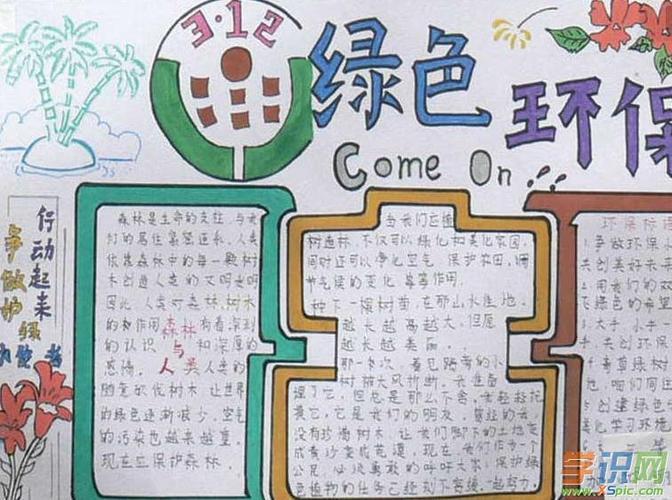 3·12
绿色
环保
Come On
行动起来
争做护绿
小使者
森林是生命的支柱，与我
们的居住紧密相永，人类
依靠森林中的每一颗树
木创造人类的文明发明
因此，人类对森林，树木
的和作用森林有着深刻
的认识 与 和深厚的
感情。人类人类的
随意砍伐树木，让世界
的绿色逐渐减少，空气
的污染也越来越重。
现在应保护森林。
当我们在植
树造林，不仅可以绿化和美化家园，
同时还可以净化空气，保护农田，调
节气候的变化，莓等作用。
种下一棵树苗，在那山水连地。
越长越高越大，但愿
越长越美丽。
那一朵次，看见路旁的小
树被大风折断。
理了它，但总是那么不舍。我轻轻抚
摸它，它是我们的朋友，曾经的我，
没有珍惜树木，让我们脚下的土地变
成黄沙变成荒漠，现在，我们作为一个
公民，必须勇敢的呼吁大家：保护绿
色植物的任务已经刻不容缓一起努力，
环保标语
1、争做环保
共创美好未来
2、用我们的双
飞绿色的希
3、大手，小手
共创环保
4、青草绿树
地，咱们同
5、创建绿色
美化学习环境
学识网
www.xSpic.com